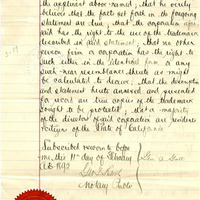 the applicant above named; that he verily
believes that the facts set forth in the foregoing
statement are true; that the corporation afore-
said has the right to the use of the trademark
described in said statement; that no other
person firm or corporation has the right to
such use either in the identical form or in any
such near resemblance thereto as might be
calculated to deceive; that the description
and statement hereto annexed and presented
for record are true copies of the trademark
sought to be protected; that a majority
of the directors of said corporation are residents
of the State of California.
Subscribed & sworn to before
me, this 11th day of
A.D. 1892
Notary Public